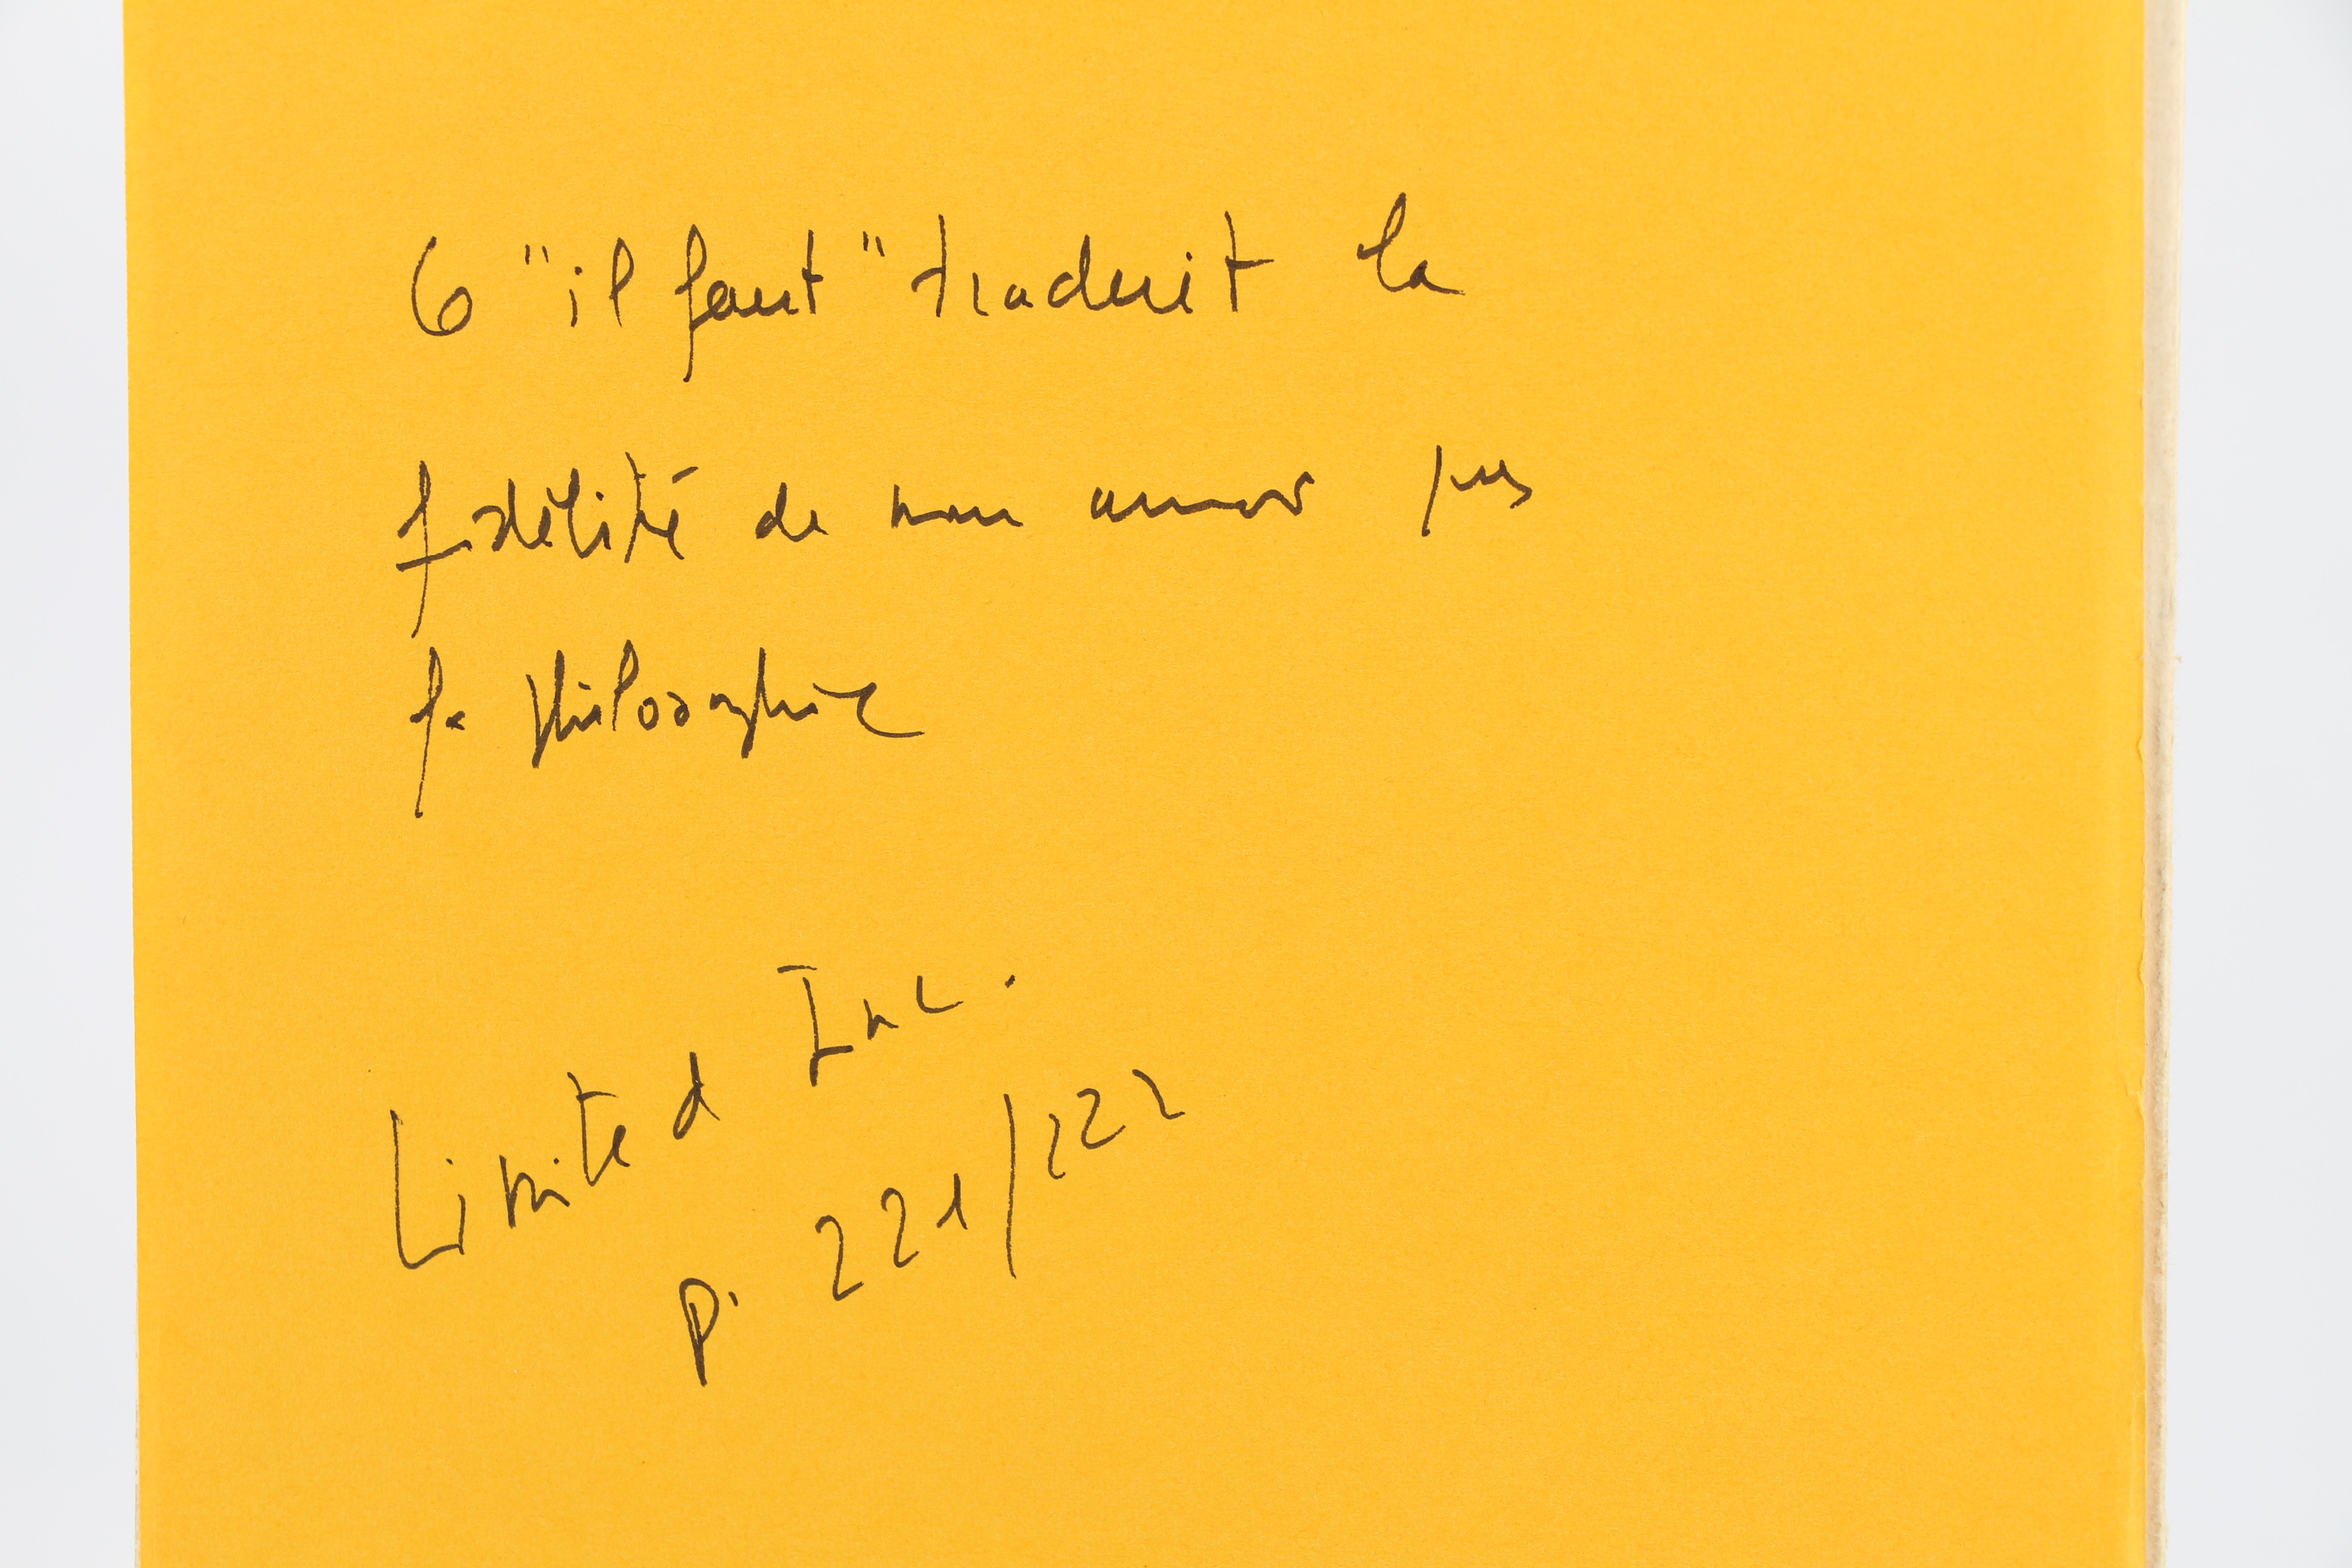 Ce "il faut" traduit la
fidélité de mon amour pour
la philosophie
Limited Inc.
p. 221/222